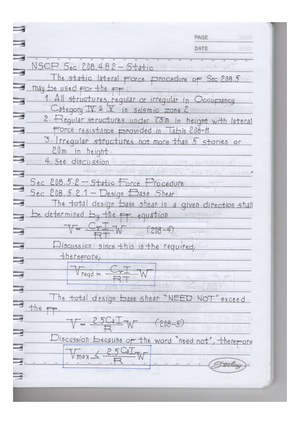 PAGE
DATE
NSCP Sec 208.4.8.2 - Static
The static lateral force procedure of Sec 208.5
may be used for the ff:
1. All structures, regular or irregular in Occupancy
Category IV & V in seismic zone 2
2. Regular structures under 75m in height with lateral
Force resistance provided in Table 208-11
3. Irregular structures not more than 5 stories or
20m in height
4. See discussion
Sec 208.5.2 - Static Force Procedure
Sec 208.5.2.1 - Design Base Shear
The total design base shear in a given direction shall
be determined by the ff. equation
V = CvI/RT W (208-4)
Discussion: since this is the required,
therefore,
Vreqd = CvI/RT W
The total design base shear "NEED NOT" exceed
the ff.
V = 2.5CaI/R W (208-5)
Discussion because of the word "need not", therefore
Vmax ≤ 2.5CaI/R W
Sterling